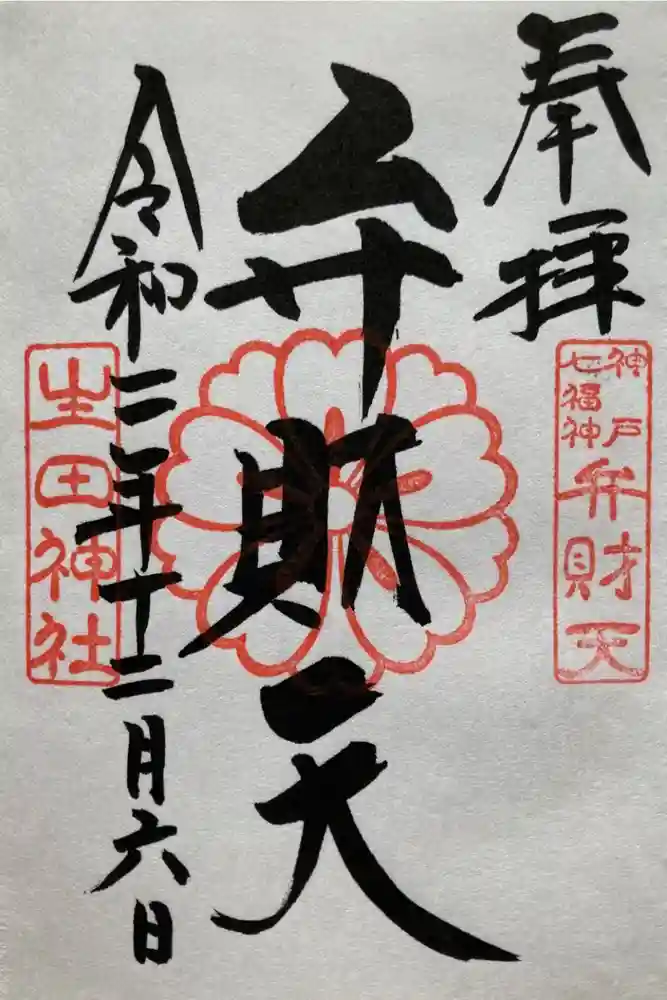 奉拝
神戸
七福神
弁財天
弁財天
令和二年十二月六日
生田神社